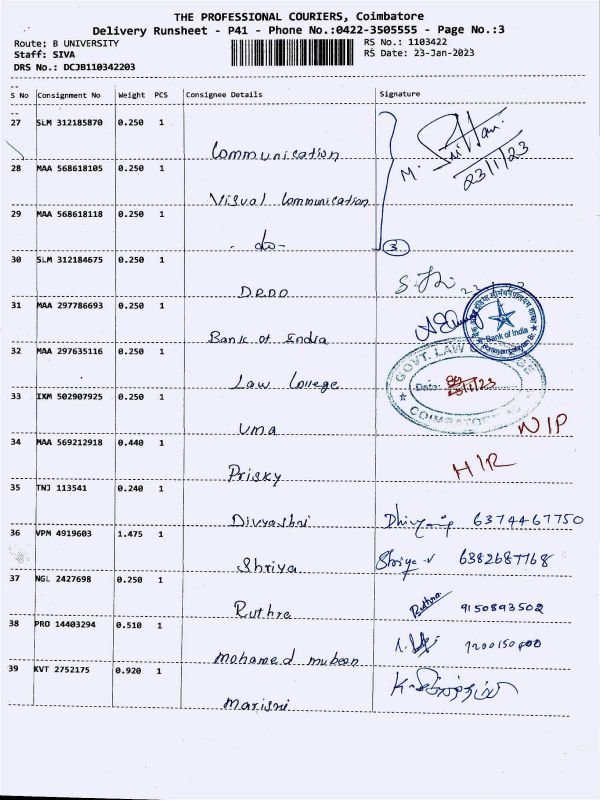 THE PROFESSIONAL COURIERS, Coimbatore
Delivery Runsheet - P41 - Phone No.:0422-3505555 - Page No.:3
Route: B UNIVERSITY RS No.: 1103422
Staff: SIVA RS Date: 23-Jan-2023
DRS No.: DCJB110342203
S No Consignment No Weight PCS Consignee Details Signature
27 SLM 312185870 0.250 1
Communication
23/1/23
28 MAA 568618105 0.250 1
Visual Communication
29 MAA 568618118 0.250 1
- do - 3
30 SLM 312184675 0.250 1
DRDO
31 MAA 297786693 0.250 1
Bank of India
Bank of India
32 MAA 297635116 0.250 1
Law College
GOVT. LAW
Date: 23/1/23
COIMBATORE
33 IXM 502907925 0.250 1
Uma NIP
34 MAA 569212918 0.440 1
Prisky HIR
35 TNJ 113541 0.240 1
Divyashri 6374467750
36 VPM 4919603 1.475 1
Shriya Shriya V 6382687768
37 NGL 2427698 0.250 1
Ruthra Ruthra 9150893502
38 PRO 14403294 0.510 1
Mohamed Mubeen
39 KVT 2752175 0.920 1
Marisni